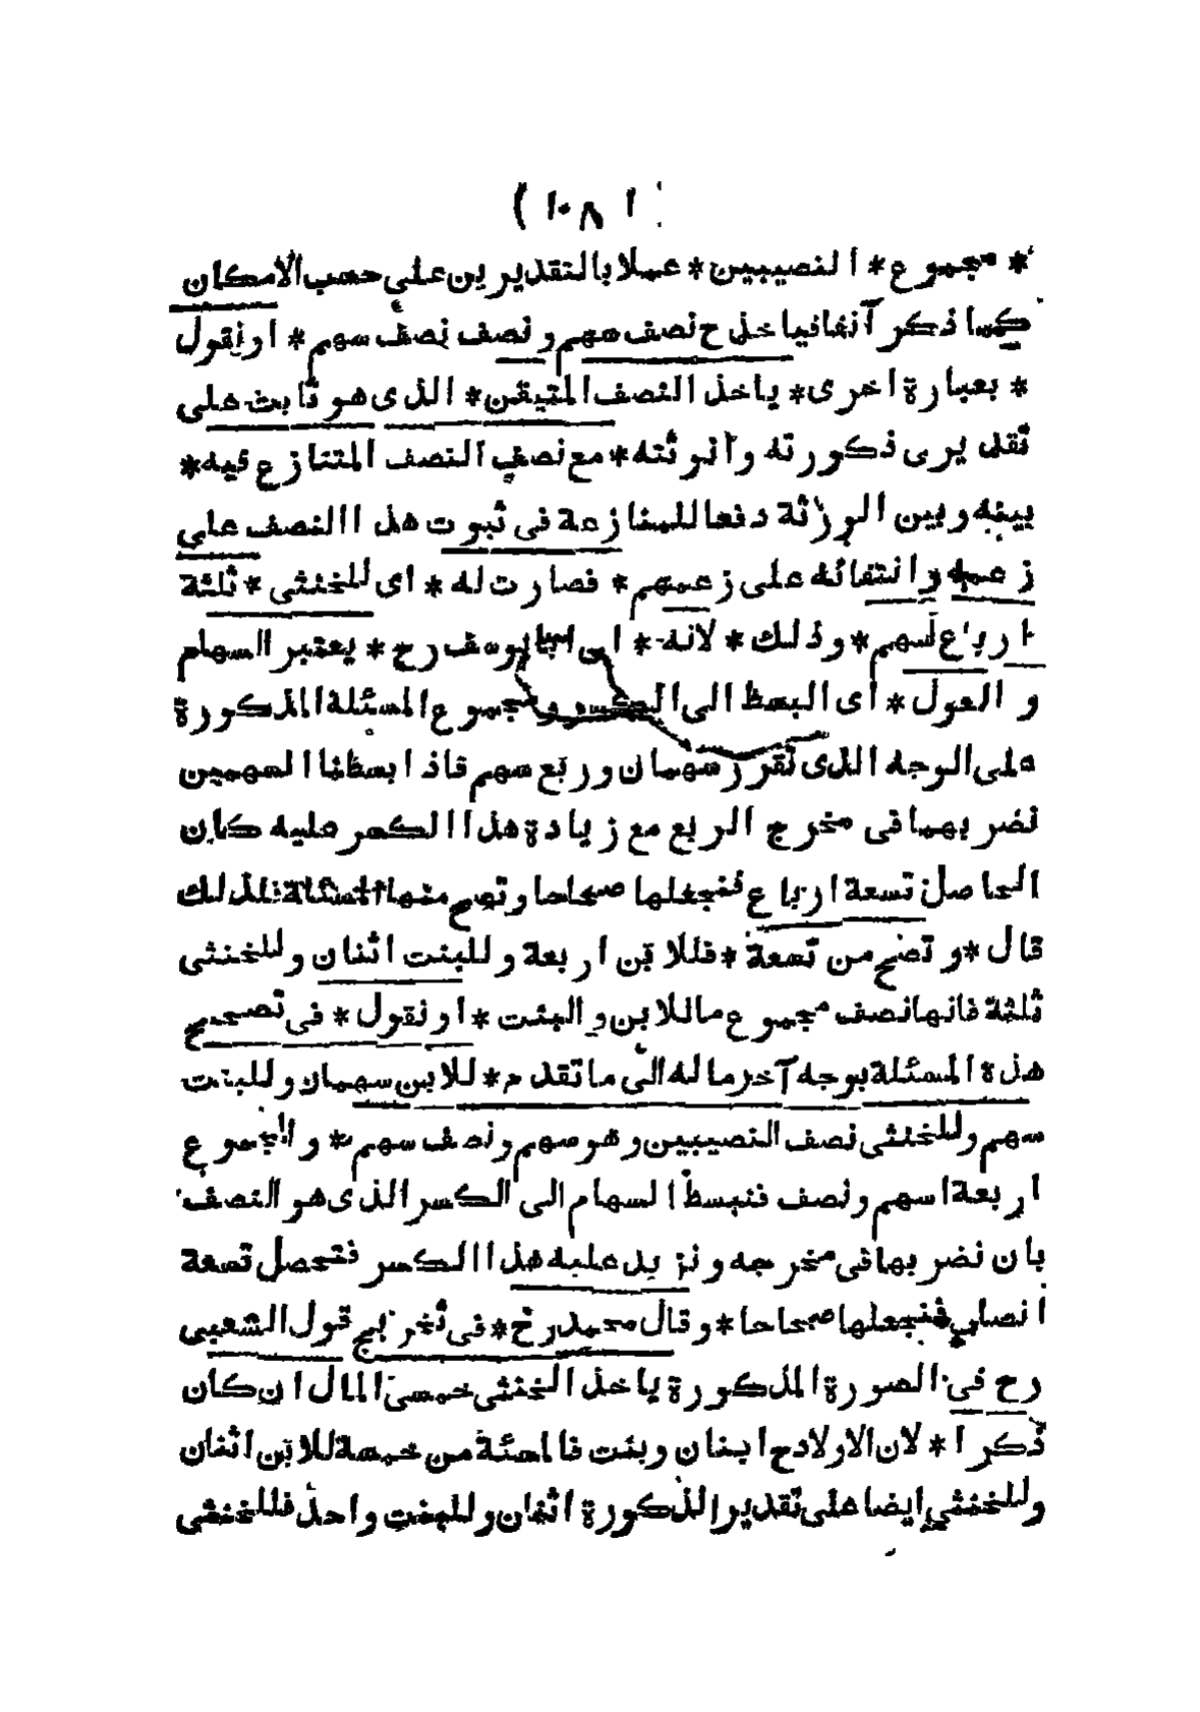 ( ١٠٨ )
* مجموع * النصيبين * عملا بالتقديرين على حسب الامكان
كما ذكر آنفا فياخذ ح نصف سهم ونصف نصف سهم * او نقول
* بعبارة اخرى * ياخذ النصف المتيقن * الذى هو ثابت على
تقديرى ذكورته وانوثته * مع نصف النصف المتنازع فيه *
بينه وبين الورثة دفعا للمنازعة فى ثبوت هذا النصف على
زعمه وانتفائه على زعمهم * فصارت له * اى للخنثى * ثلثة
ارباع سهم * وذلك * لانه * اى ابا يوسف رح * يعتبر السهام
والعول * اى البسط الى الكسور ومجموع المسئلة المذكورة
على الوجه الذى تقرر سهمان وربع سهم فاذا بسطنا السهمين
نضربهما فى مخرج الربع مع زيادة هذا الكسر عليه كان
الحاصل تسعة ارباع فنجعلها صحاحا وتصح منها المسئلة فلذلك
قال * وتصح من تسعة * فللابن اربعة وللبنت اثنان وللخنثى
ثلثة فانها نصف مجموع ما للابن والبنت * او نقول * فى تصحيح
هذة المسئلة بوجه آخر ما له الى ما تقدم * للابن سهمان وللبنت
سهم وللخنثى نصف النصيبين وهو سهم ونصف سهم * والمجموع
اربعة اسهم ونصف فنبسط السهام الى الكسر الذى هو النصف
بان نضربها فى مخرجه ونزيد عليه هذا الكسر فتحصل تسعة
انصاف فنجعلها صحاحا * وقال محمد رح * فى تخريج قول الشعبى
رح فى الصورة المذكورة ياخذ الخنثى خمسى المال ان كان
ذكرا * لان الاولاد ح ابنان وبنت فالمسئلة من خمسة للابن اثنان
وللخنثى ايضا على تقدير الذكورة اثنان وللبنت واحد فللخنثى